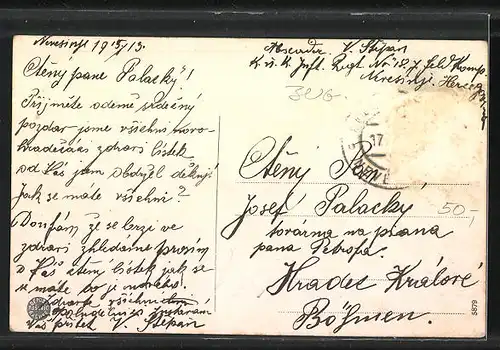 Nevesinje 19 15/5 13.
Ctěný pane Palacký!
Přijměte odemě srdečný
pozdrav jsme všichni Koro-
hradečáci zdraví lístek
od Vás jsem obdržel děkuji
Jak se máte všichni?
Doufám že se brzi ve
zdraví shledáme prosím
o Váš ctěný lístek jak se
máte
všichni
Váš přítel V. Štěpán
Absender. V. Štěpán
K. u. K. Inft. Regt No 18. 7. Feld Komp.
Nevesinje. Herceg
17
Ctěný P.
Josef Palacký
továrna na piana
pana Petrofa.
Hradec Králové
Böhmen.
50,
5879